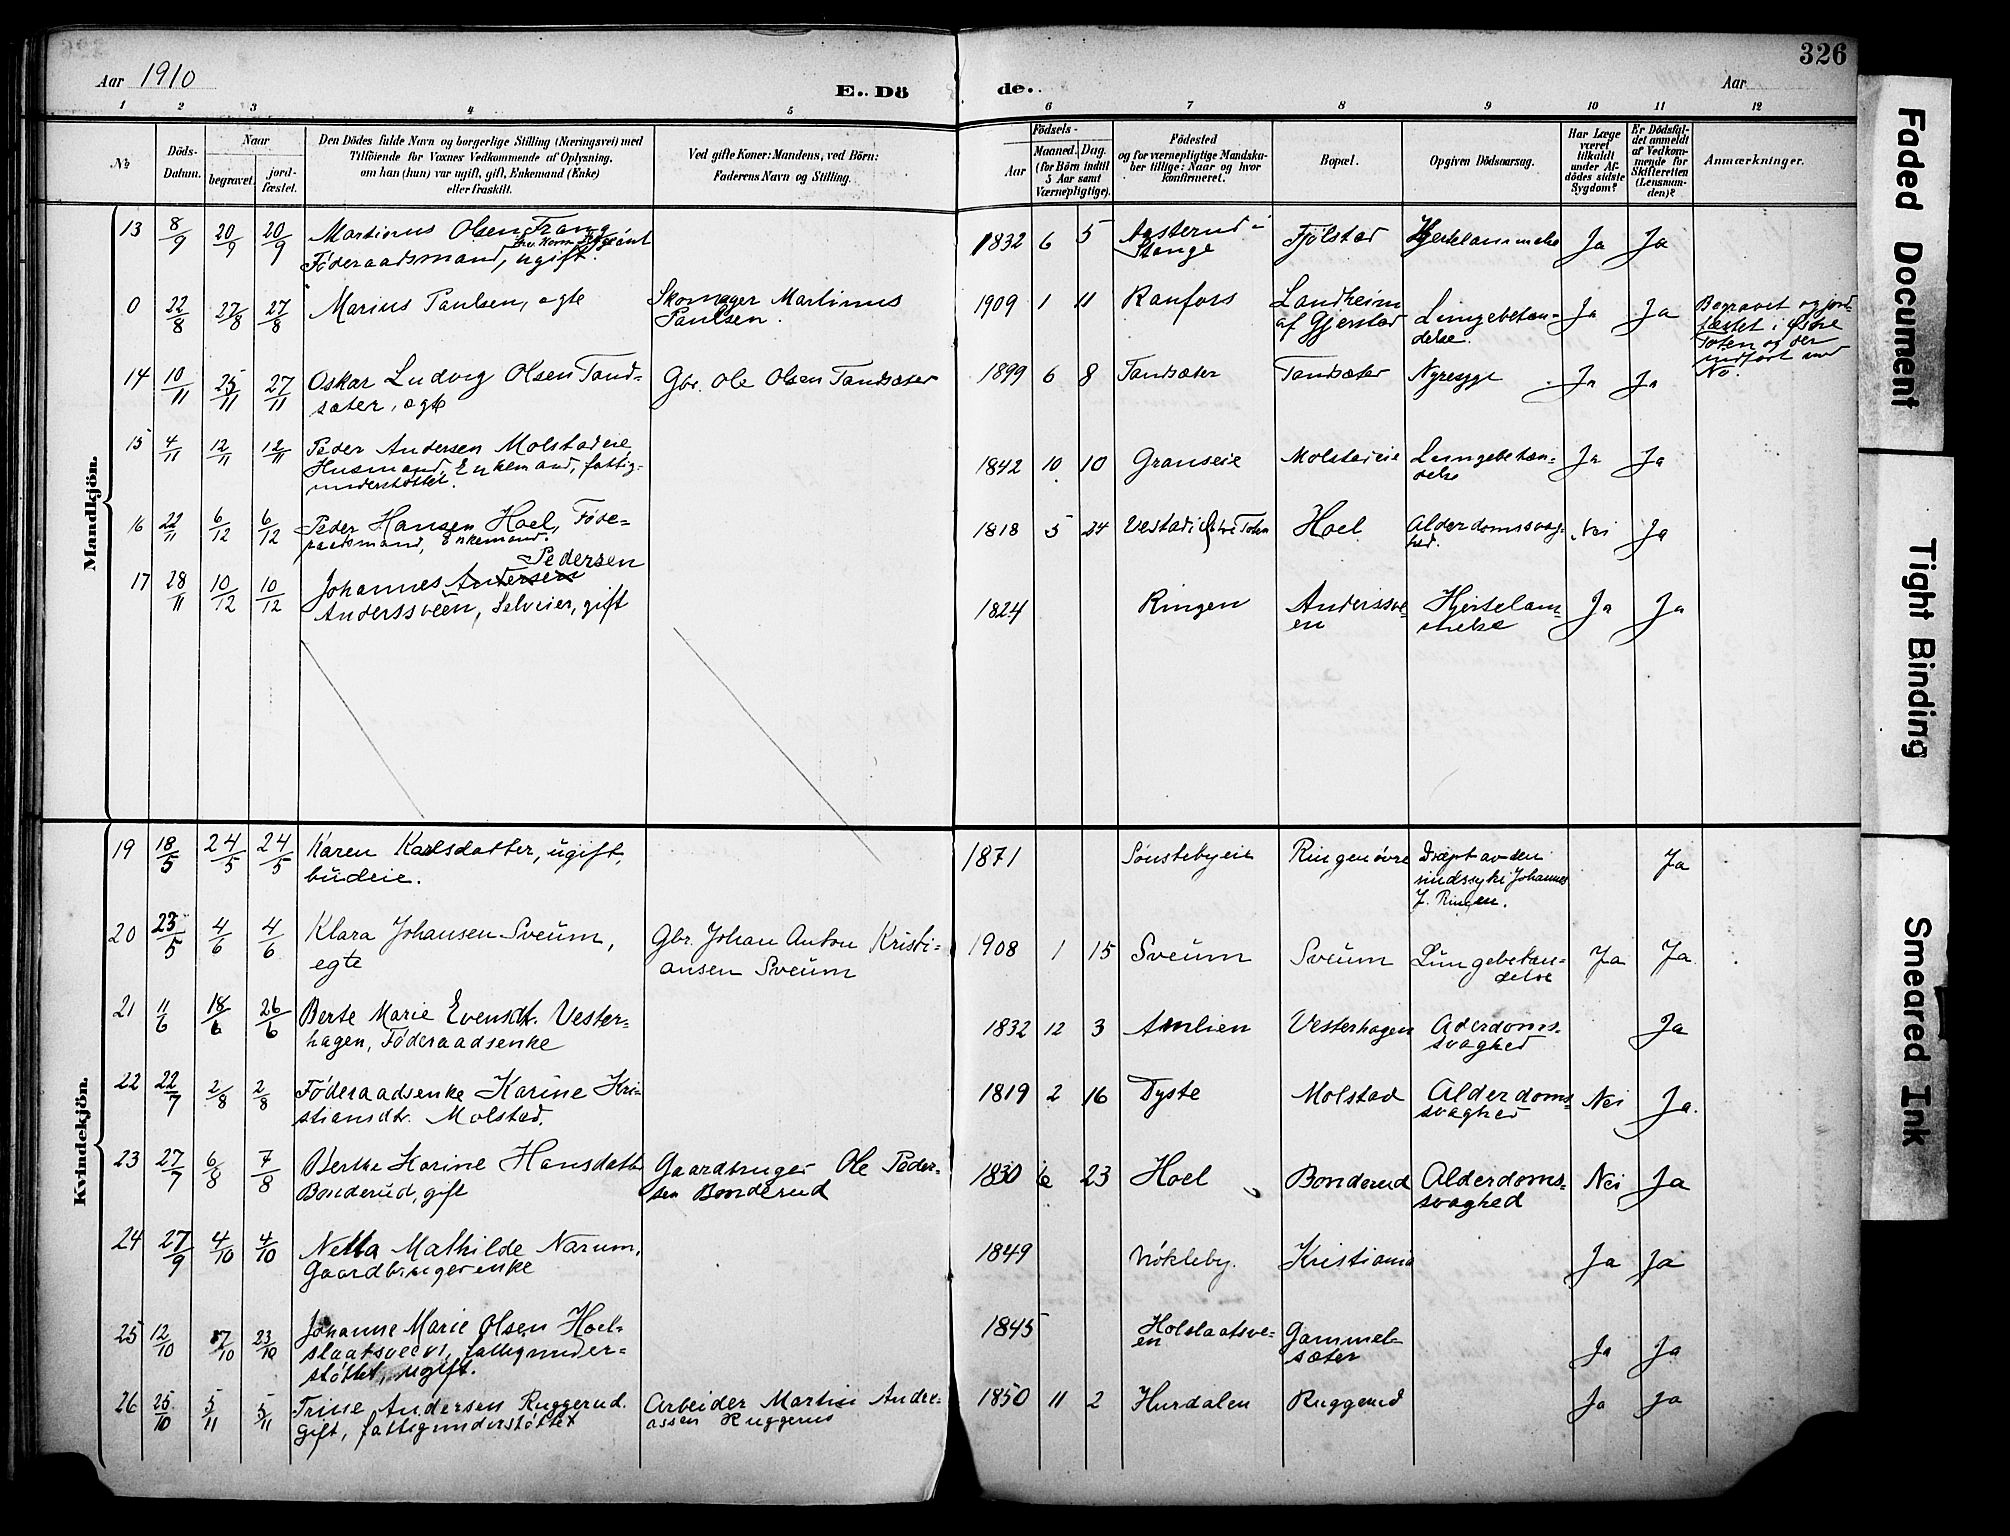 326
Aar 1910
E. Dö
de.
Aar
1 2 3 4 5 6 7 8 9 10 11 12
No
Döds-
Datum.
Naar
begravet.
jord-
fæstet.
Den Dödes fulde Navn og borgerlige Stilling (Næringsvei) med
Tilföiende for Voxnes Vedkommende af Oplysning,
om han (hun) var ugift, gift, Enkemand (Enke)
eller fraskilt.
Ved gifte Koner: Mandens, ved Börn:
Faderens Navn og Stilling.
Födsels-
Aar
Maaned. Dag.
(for Börn indtil
5 Aar samt
Værnepligtige).
Födested
og for værnepligtige Mandska-
ber tillige: Naar og hvor
konfirmeret.
Bopæl.
Opgiven Dödsaarsag.
Har Læge
været
tilkaldt
under Af-
dödes sidste
Sygdom?
Er Dödsfal-
det anmeldt
af Vedkom-
mende for
Skifteretten
(Lensman-
den)?
Anmærkninger.
Mandkjön.
13 8/9 20/9 20/9 Martinus Olsen Frang
Föderaadsmand, ugift.
1832 6 5 i
Stange
Fjölstad Hjertelammelse Ja Ja
0 22/8 27/8 27/8 Marius Paulsen, ægte
Skomager Martinus
Paulsen.
1909 1 11 Raufoss Landheim
af Gjerstad
Lungebetæn-
delse.
Ja Ja
Begravet og jord-
fæstet i Østre
Toten og der
indført med
No.
14 10/11 25/11 27/11 Oskar Ludvig Olsen Tand-
sæter, ægte
Gbr. Ole Olsen Tandsæter
1899 6 8 Tandsæter Tandsæter Nyresyge Ja Ja
15 4/11 12/11 12/11 Peder Andersen Molstadeie
Husmand, Enkemand, fattig-
understøttet.
1842 10 10 Granseie Molstadeie Lungebetæn-
delse
Ja Ja
16 22/11 6/12 6/12 Peder Hansen Hoel, Føde-
raadsmand, Enkemand.
1818 5 24 Vestad i Østre Toten Hoel Alderdomssvag-
hed.
Nei Ja
17 28/11 10/12 10/12 Johannes Andersen Pedersen
Anderssveen, Selveier, gift
1824 Ringen Anderssve-
en
Hjertelam-
melse
Ja Ja
Kvindekjön.
19 18/5 24/5 24/5 Karen Karlsdatter, ugift,
budeie.
1871 Sønstebyeie Ringen øvre Dræpt av den
sindssyke Johannes
J. Ringen.
Ja
20 23/5 4/6 4/6 Klara Johansen Sveum,
egte
Gbr. Johan Anton Kristi-
ansen Sveum
1908 1 15 Sveum Sveum Lungebetæn-
delse
Ja Ja
21 11/6 18/6 26/6 Berte Marie Evensdt. Vester-
hagen, Føderaadsenke
1832 12 3 Amlien Vesterhagen Aderdoms-
svaghed
Ja
22 22/7 2/8 2/8 Føderaadsenke Karine Kri-
stiansdtr. Molstad.
1819 2 16 Dyste Molstad Alderdoms-
svaghed
Nei Ja.
23 27/7 6/8 7/8 Berthe Karine Hansdatter
Bonderud, gift
Gaardbruger Ole Peder-
sen Bonderud
1830 23 Hoel Bonderud Alderdoms-
svaghed
Nei Ja
24 27/9 4/10 4/10 Netta Mathilde Narum,
Gaardbrugerenke
1849 Nøkleby. Kristiania
Ja Ja
25 12/10 17/10 23/10 Johanne Marie Olsen Hoel-
slaatsveen, fattigunder-
støttet, ugift.
1845 Holslaatsve-
en
Gammel-
sæter
Ja Ja
26 25/10 5/11 5/11 Trine Andersen Ruggerud.
Gift, fattigunderstøttet
Arbeider Martin Ander-
assen Ruggerud
1850 11 2 Hurdalen Ruggerud
Ja Ja
Faded Document
Tight Binding
Smeared Ink